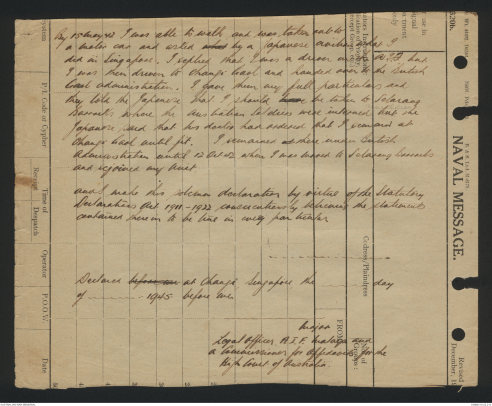 By 15 May 42 I was able to walk and was taken out to
a motor car and asked by a Japanese civilian what I
did in Singapore. I replied that I was a driver and
I was then driven to Changi Gaol and handed over to the British
Gaol administration. I gave them my full particulars and
they told the Japanese that I should be taken to Selarang
Barracks where the Australian soldiers were interned but the
Japanese said that his doctor had ordered that I remain at
Changi Gaol until fit. I remained there under British
Administration until 12 Oct 42 when I was moved to Selarang barracks
and rejoined my Unit
and I make this solemn declaration by virtue of the Statutory
Declarations Act 1911-1922 conscientiously believing the statements
contained therein to be true in every particular
Declared before me at Changi, Singapore the day
of 1945 before me
Major
Legal Officer A.I.F. Malaya and
a Commissioner for Affidavits for the
High Court of Australia.
NAVAL MESSAGE.
Revised
December,
System
P/L Code or Cypher
Time of
Receipt Despatch
Operator
P.O.O.W.
Date
Codress/Plaindress
FROM